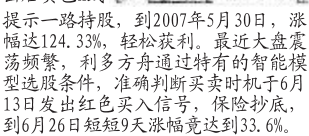 提示一路持股，到2007年5月30日，涨
幅达124.33%，轻松获利。最近大盘震
荡频繁，利多方舟通过特有的智能模
型选股条件，准确判断买卖时机于6月
13日发出红色买入信号，保险抄底，
到6月26日短短9天涨幅竟达到33.6%。